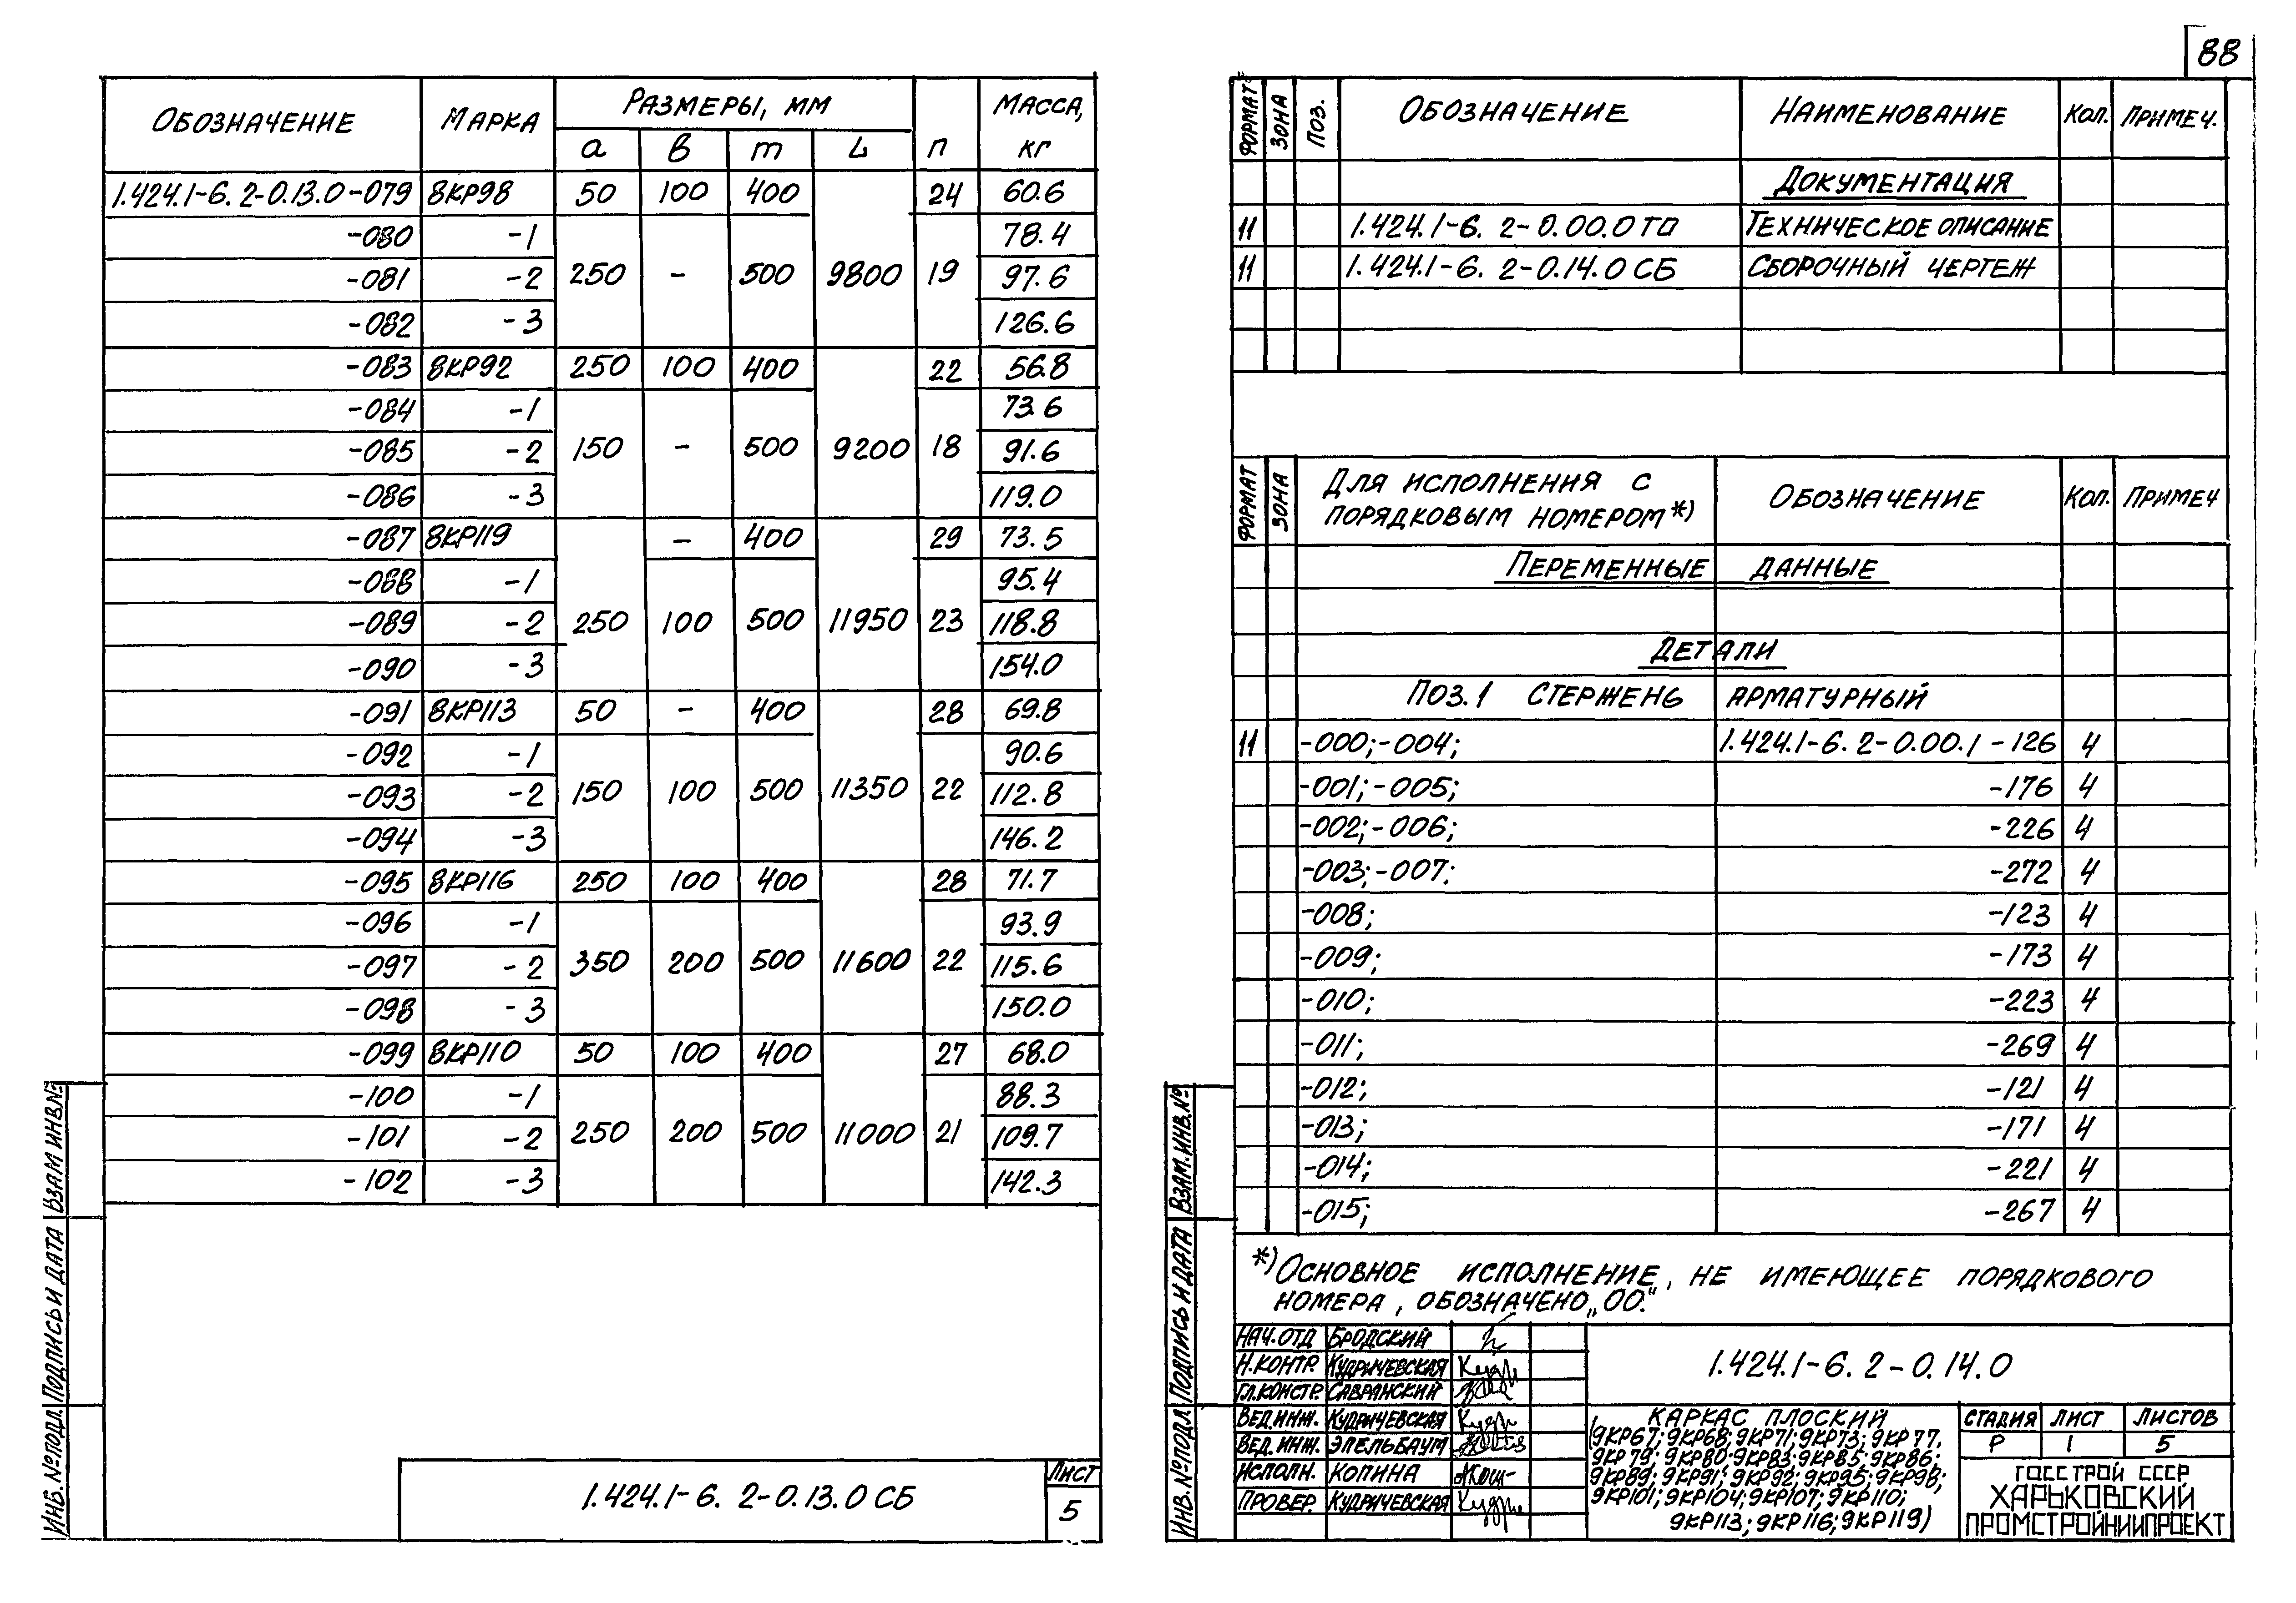 88
ОБОЗНАЧЕНИЕ МАРКА РАЗМЕРЫ, ММ п МАССА, КГ
а в m L
1.424.1-6. 2-0.13.0-079 8КР98 50 100 400 9800 24 60.6
-080 -1 250 - 500 19 78.4
-081 -2 97.6
-082 -3 126.6
-083 8КР92 250 100 400 9200 22 56.8
-084 -1 150 - 500 18 73.6
-085 -2 91.6
-086 -3 119.0
-087 8КР119 250 - 400 11950 29 73.5
-088 -1 100 500 23 95.4
-089 -2 118.8
-090 -3 154.0
-091 8КР113 50 - 400 11350 28 69.8
-092 -1 150 100 500 22 90.6
-093 -2 112.8
-094 -3 146.2
-095 8КР116 250 100 400 11600 28 71.7
-096 -1 350 200 500 22 93.9
-097 -2 115.6
-098 -3 150.0
-099 8КР110 50 100 400 11000 27 68.0
-100 -1 250 200 500 21 88.3
-101 -2 109.7
-102 -3 142.3
ИНВ. №ПОДЛ. ПОДПИСЬ И ДАТА ВЗАМ ИНВ.№
1.424.1-6. 2-0.13.0 СБ
ЛИСТ
5
ФОРМАТ ЗОНА ПОЗ. ОБОЗНАЧЕНИЕ НАИМЕНОВАНИЕ КОЛ. ПРИМЕЧ.
ДОКУМЕНТАЦИЯ
11 1.424.1-6. 2-0.00.0 ТО ТЕХНИЧЕСКОЕ ОПИСАНИЕ
11 1.424.1-6. 2-0.14.0 СБ СБОРОЧНЫЙ ЧЕРТЕЖ
ФОРМАТ ЗОНА ДЛЯ ИСПОЛНЕНИЯ С ПОРЯДКОВЫМ НОМЕРОМ*) ОБОЗНАЧЕНИЕ КОЛ. ПРИМЕЧ
ПЕРЕМЕННЫЕ ДАННЫЕ
ДЕТАЛИ
ПОЗ.1 СТЕРЖЕНЬ АРМАТУРНЫЙ
11 -000;-004; 1.424.1-6. 2-0.00.1 -126 4
-001;-005; -176 4
-002;-006; -226 4
-003;-007; -272 4
-008; -123 4
-009; -173 4
-010; -223 4
-011; -269 4
-012; -121 4
-013; -171 4
-014; -221 4
-015; -267 4
*) ОСНОВНОЕ ИСПОЛНЕНИЕ, НЕ ИМЕЮЩЕЕ ПОРЯДКОВОГО
НОМЕРА, ОБОЗНАЧЕНО „ОО."
НАЧ.ОТД БРОДСКИЙ
Н.КОНТР. КУДРИЧЕВСКАЯ
ГЛ.КОНСТР. САВРАНСКИЙ
ВЕД.ИНЖ. КУДРИЧЕВСКАЯ
ВЕД.ИНЖ. ЭПЕЛЬБАУМ
ИСПОЛН. КОПИНА
ПРОВЕР. КУДРИЧЕВСКАЯ
1.424.1-6. 2-0.14.0
КАРКАС ПЛОСКИЙ
(9КР67; 9КР68; 9КР71; 9КР73; 9КР77,
9КР79; 9КР80; 9КР83; 9КР85; 9КР86;
9КР89; 9КР91; 9КР92; 9КР95; 9КР98;
9КР101; 9КР104; 9КР107; 9КР110;
9КР113; 9КР116; 9КР119)
СТАДИЯ ЛИСТ ЛИСТОВ
Р 1 5
ГОССТРОЙ СССР
ХАРЬКОВСКИЙ
ПРОМСТРОЙНИИПРОЕКТ
ИНВ.№ПОДЛ. ПОДПИСЬ И ДАТА ВЗАМ.ИНВ.№